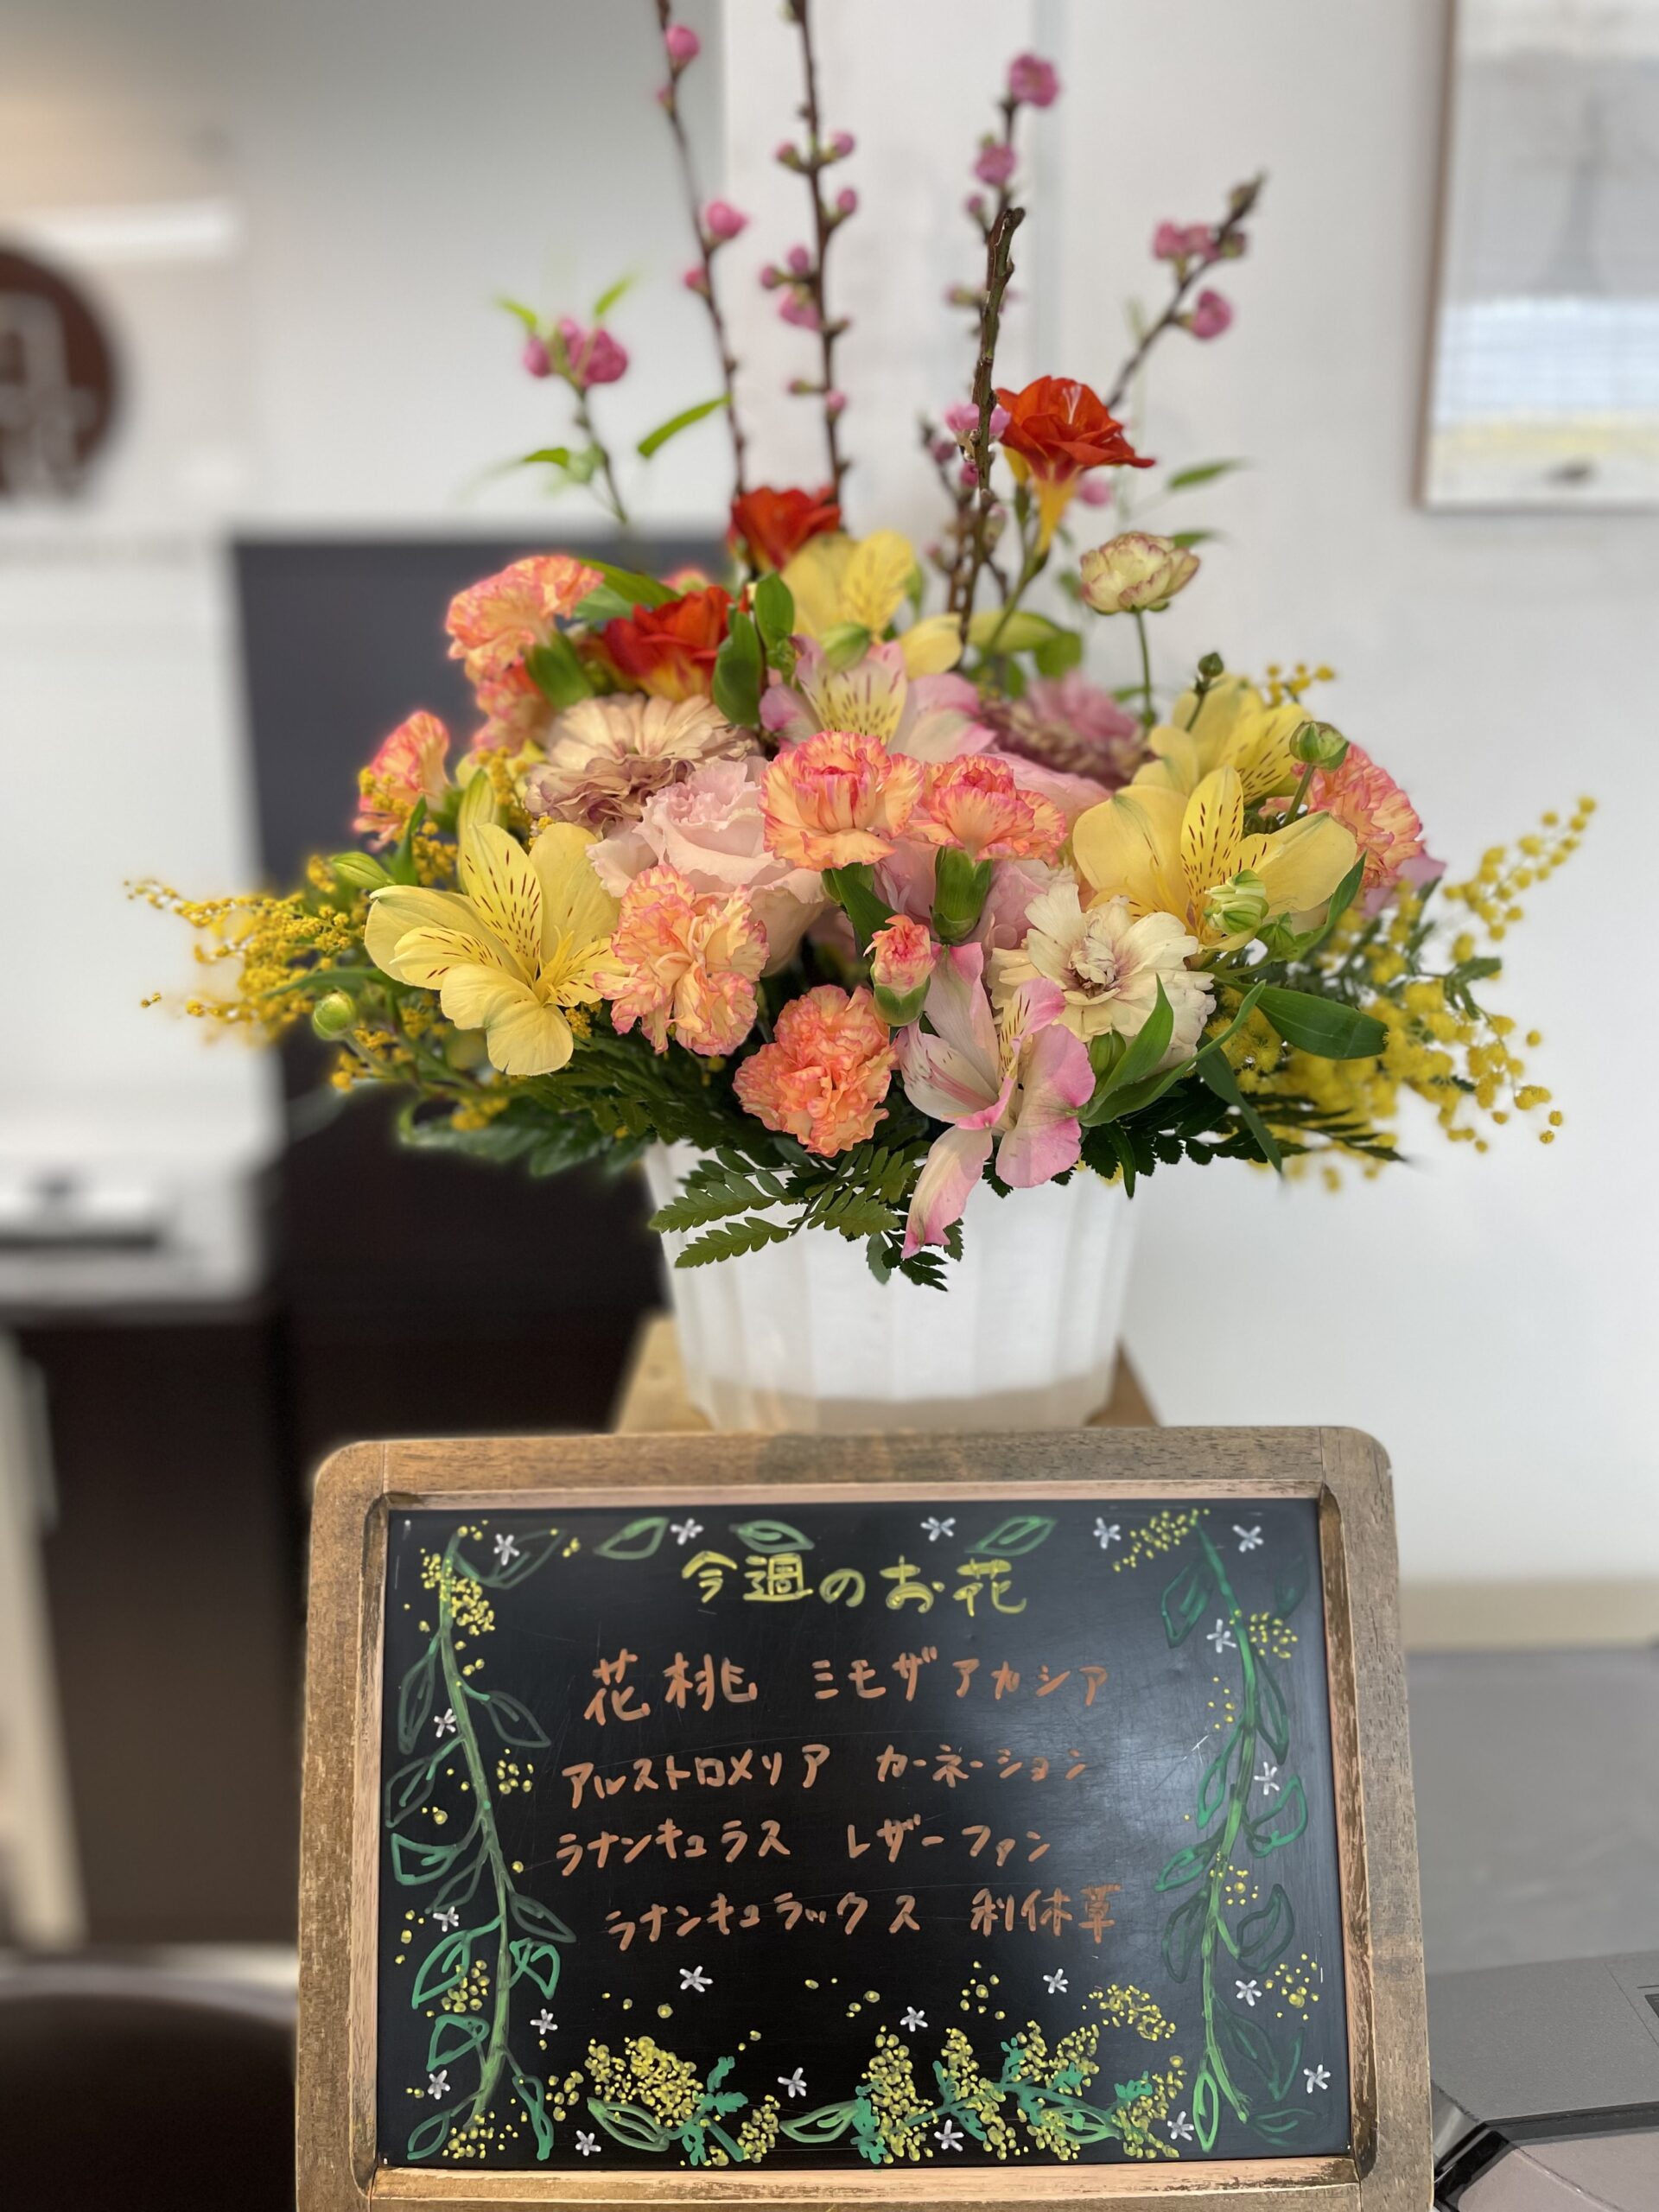 今週のお花
花桃 ミモザアカシア
アルストロメリア カーネーション
ラナンキュラス レザーファン
ラナンキュラックス 利休草